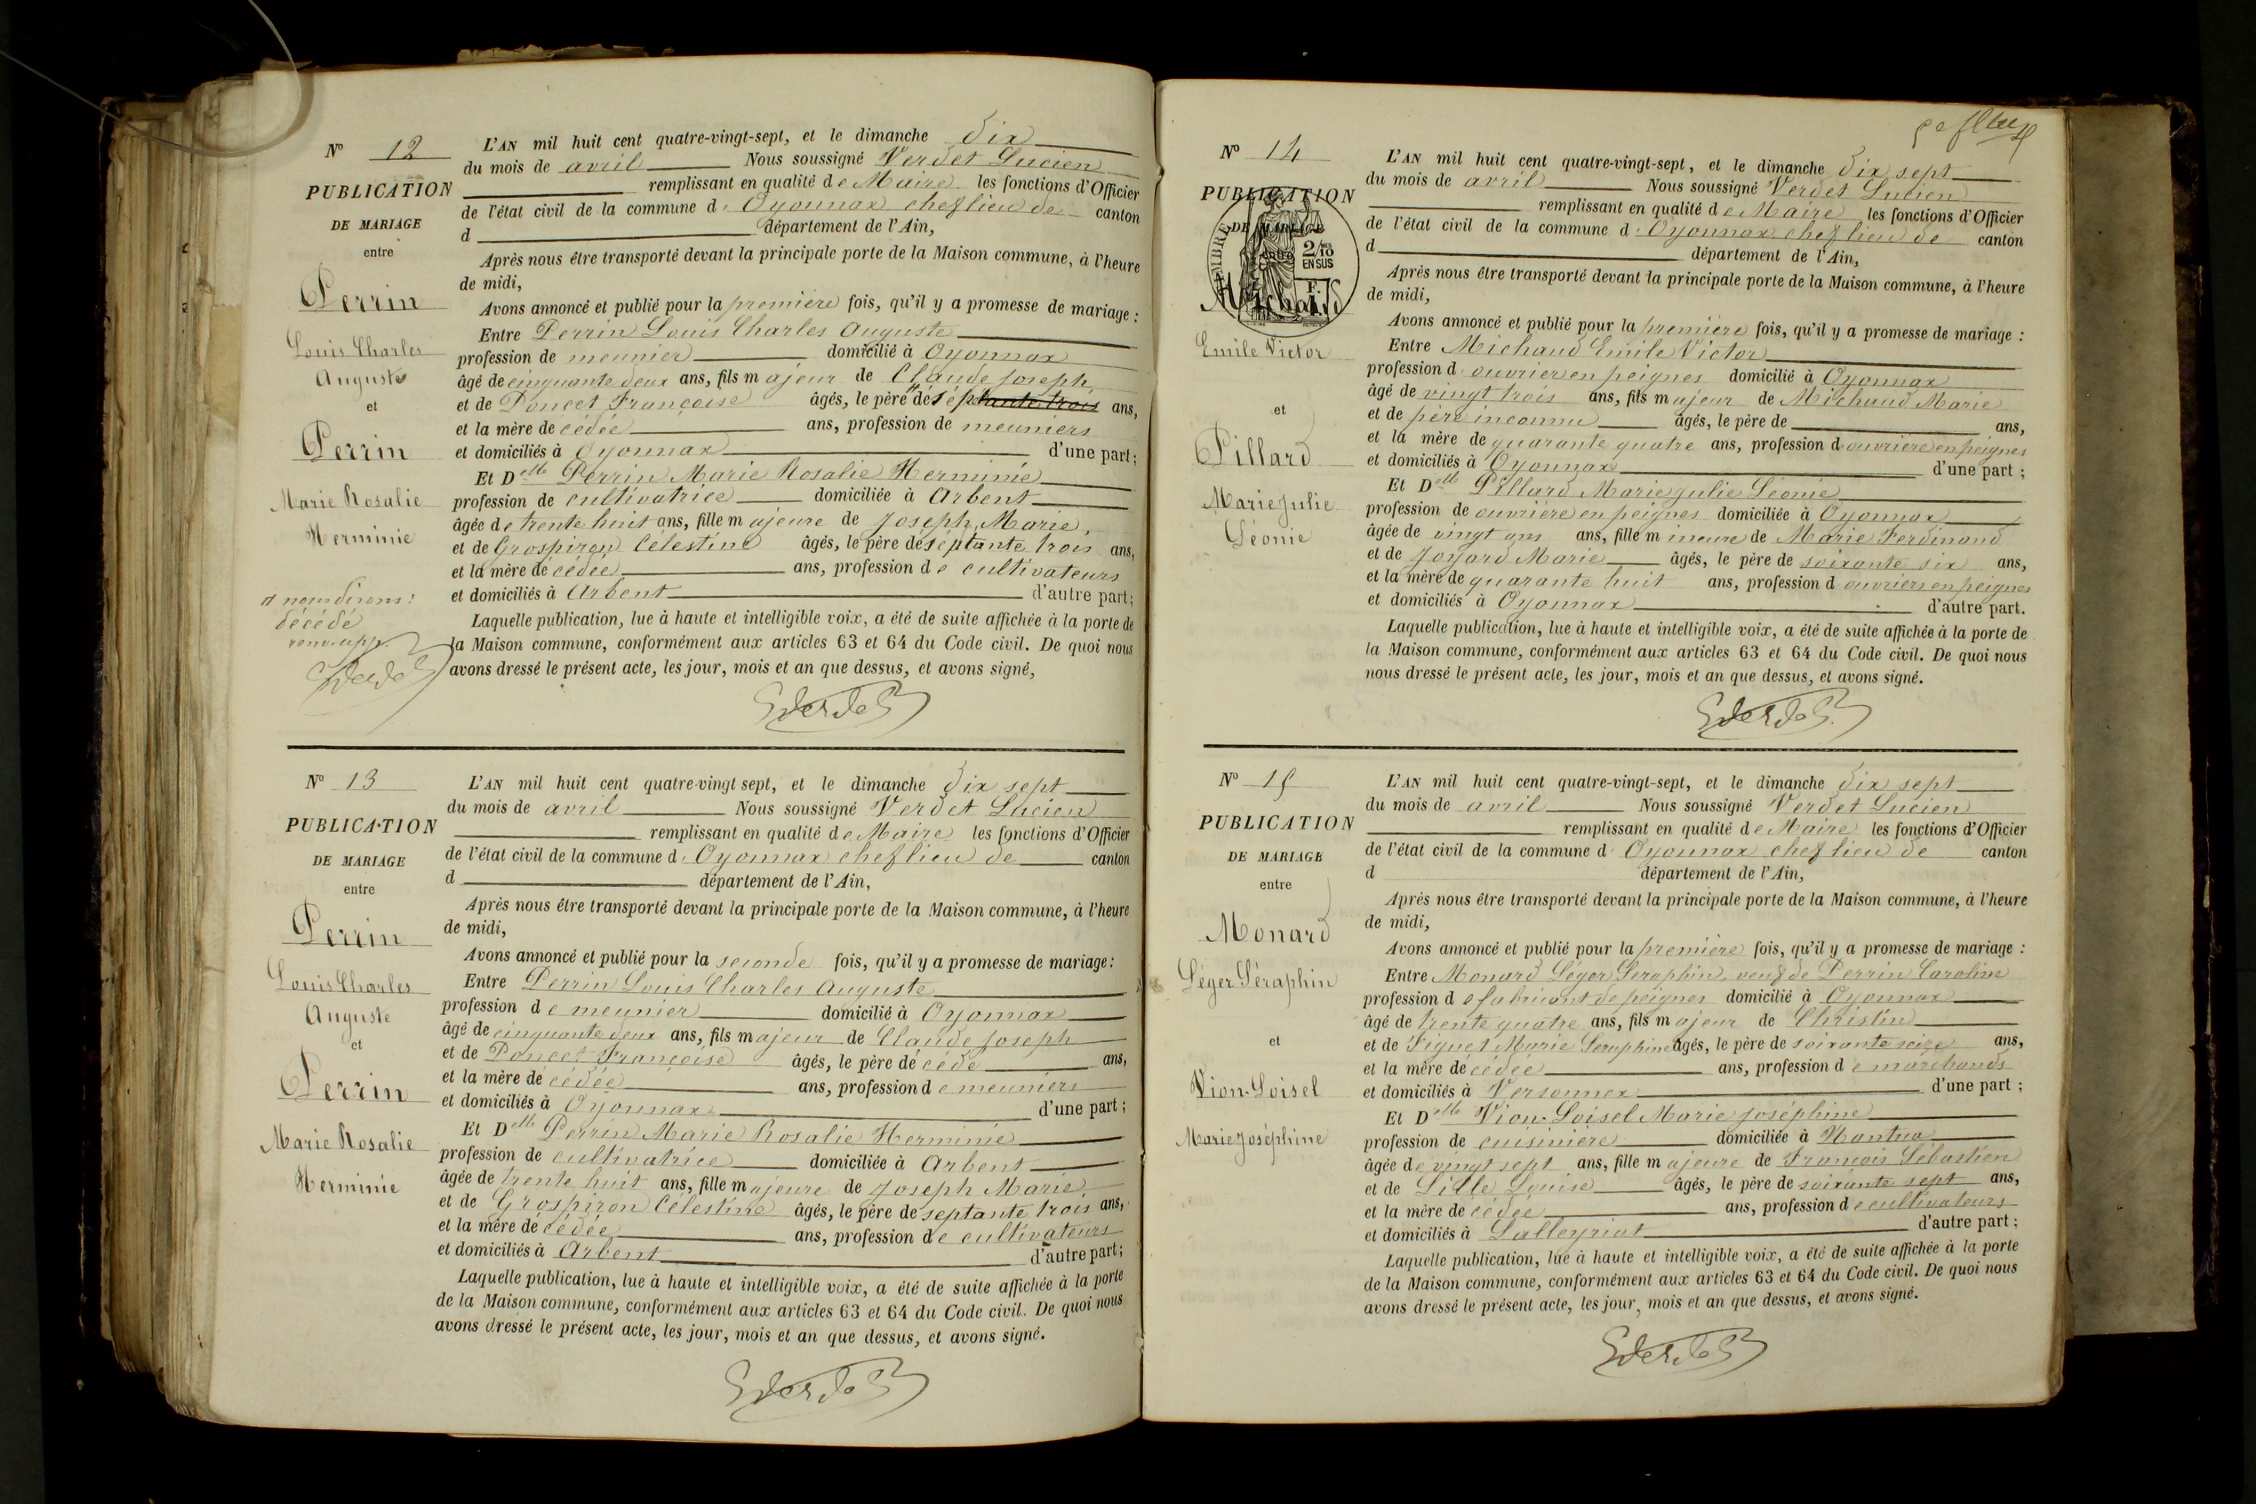 N° 12
PUBLICATION
DE MARIAGE
entre
Perrin
Louis Charles
Auguste
et
Perrin
Marie Rosalie
Herminie
# nous disons:
décédé
L'AN mil huit cent quatre-vingt-sept, et le dimanche dix
du mois de avril Nous soussigné Verdet Lucien
remplissant en qualité de Maire les fonctions d'Officier
de l'état civil de la commune d'Oyonnax chef lieu de canton
d département de l'Ain,
Après nous être transporté devant la principale porte de la Maison commune, à l'heure
de midi,
Avons annoncé et publié pour la première fois, qu'il y a promesse de mariage :
Entre Perrin Louis Charles Auguste
profession de meunier domicilié à Oyonnax
âgé de cinquante deux ans, fils majeur de Claude Joseph
et de Poncet Françoise âgés, le père de septante trois ans,
et la mère décédée ans, profession de meuniers
et domiciliés à Oyonnax d'une part ;
Et Delle Perrin Marie Rosalie Herminie
profession de cultivatrice domiciliée à Arbent
âgée de trente huit ans, fille majeure de Joseph Marie
et de Grospiron Célestine âgés, le père de septante trois ans,
et la mère décédée ans, profession de cultivateurs
et domiciliés à Arbent d'autre part ;
Laquelle publication, lue à haute et intelligible voix, a été de suite affichée à la porte de
la Maison commune, conformément aux articles 63 et 64 du Code civil. De quoi nous
avons dressé le présent acte, les jour, mois et an que dessus, et avons signé,
N° 13
PUBLICATION
DE MARIAGE
entre
Perrin
Louis Charles
Auguste
et
Perrin
Marie Rosalie
Herminie
L'AN mil huit cent quatre-vingt sept, et le dimanche dix sept
du mois de avril Nous soussigné Verdet Lucien
remplissant en qualité de Maire les fonctions d'Officier
de l'état civil de la commune d'Oyonnax chef lieu de canton
d département de l'Ain,
Après nous être transporté devant la principale porte de la Maison commune, à l'heure
de midi,
Avons annoncé et publié pour la seconde fois, qu'il y a promesse de mariage :
Entre Perrin Louis Charles Auguste
profession de meunier domicilié à Oyonnax
âgé de cinquante deux ans, fils majeur de Claude Joseph
et de Poncet Françoise âgés, le père décédé ans,
et la mère décédée ans, profession de meuniers
et domiciliés à Oyonnax d'une part ;
Et Delle Perrin Marie Rosalie Herminie
profession de cultivatrice domiciliée à Arbent
âgée de trente huit ans, fille majeure de Joseph Marie
et de Grospiron Célestine âgés, le père de septante trois ans,
et la mère décédée ans, profession de cultivateurs
et domiciliés à Arbent d'autre part ;
Laquelle publication, lue à haute et intelligible voix, a été de suite affichée à la porte
de la Maison commune, conformément aux articles 63 et 64 du Code civil. De quoi nous
avons dressé le présent acte, les jour, mois et an que dessus, et avons signé.
N° 14
PUBLICATION
DE MARIAGE
2/10
EN SUS
Michaud
Emile Victor
et
Pillard
Marie Julie
Léonie
L'AN mil huit cent quatre-vingt-sept, et le dimanche dix sept
du mois de avril Nous soussigné Verdet Lucien
remplissant en qualité de Maire les fonctions d'Officier
de l'état civil de la commune d'Oyonnax chef lieu de canton
d département de l'Ain,
Après nous être transporté devant la principale porte de la Maison commune, à l'heure
de midi,
Avons annoncé et publié pour la première fois, qu'il y a promesse de mariage :
Entre Michaud Emile Victor
profession d'ouvrier en peignes domicilié à Oyonnax
âgé de vingt trois ans, fils majeur de Michaud Marie
et de père inconnu âgés, le père de ans,
et la mère de quarante quatre ans, profession d'ouvrière en peignes
et domiciliés à Oyonnax d'une part ;
Et Delle Pillard Marie Julie Léonie
profession de ouvrière en peignes domiciliée à Oyonnax
âgée de vingt ans ans, fille mineure de Marie Ferdinand
et de Joyard Marie âgés, le père de soixante six ans,
et la mère de quarante huit ans, profession d'ouvriers en peignes
et domiciliés à Oyonnax d'autre part.
Laquelle publication, lue à haute et intelligible voix, a été de suite affichée à la porte de
la Maison commune, conformément aux articles 63 et 64 du Code civil. De quoi nous
nous dressé le présent acte, les jour, mois et an que dessus, et avons signé.
N° 15
PUBLICATION
DE MARIAGE
entre
Monard
Léger Séraphin
et
Vion-Loisel
Marie Joséphine
L'AN mil huit cent quatre-vingt-sept, et le dimanche dix sept
du mois de avril Nous soussigné Verdet Lucien
remplissant en qualité de Maire les fonctions d'Officier
de l'état civil de la commune d'Oyonnax chef lieu de canton
d département de l'Ain,
Après nous être transporté devant la principale porte de la Maison commune, à l'heure
de midi,
Avons annoncé et publié pour la première fois, qu'il y a promesse de mariage :
Entre Monard Léger Séraphin veuf de Perrin Caroline
profession de fabricant de peignes domicilié à Oyonnax
âgé de trente quatre ans, fils majeur de Christin
et de Marie Séraphine âgés, le père de soixante seize ans,
et la mère décédée ans, profession de marchands
et domiciliés à Versonnex d'une part ;
Et Delle Vion-Loisel Marie Joséphine
profession de cuisinière domiciliée à Nantua
âgée de vingt sept ans, fille majeure de François Sébastien
et de Lille Louise âgés, le père de soixante sept ans,
et la mère décédée ans, profession de cultivateurs
et domiciliés à Lalleyriat d'autre part ;
Laquelle publication, lue à haute et intelligible voix, a été de suite affichée à la porte
de la Maison commune, conformément aux articles 63 et 64 du Code civil. De quoi nous
avons dressé le présent acte, les jour, mois et an que dessus, et avons signé.